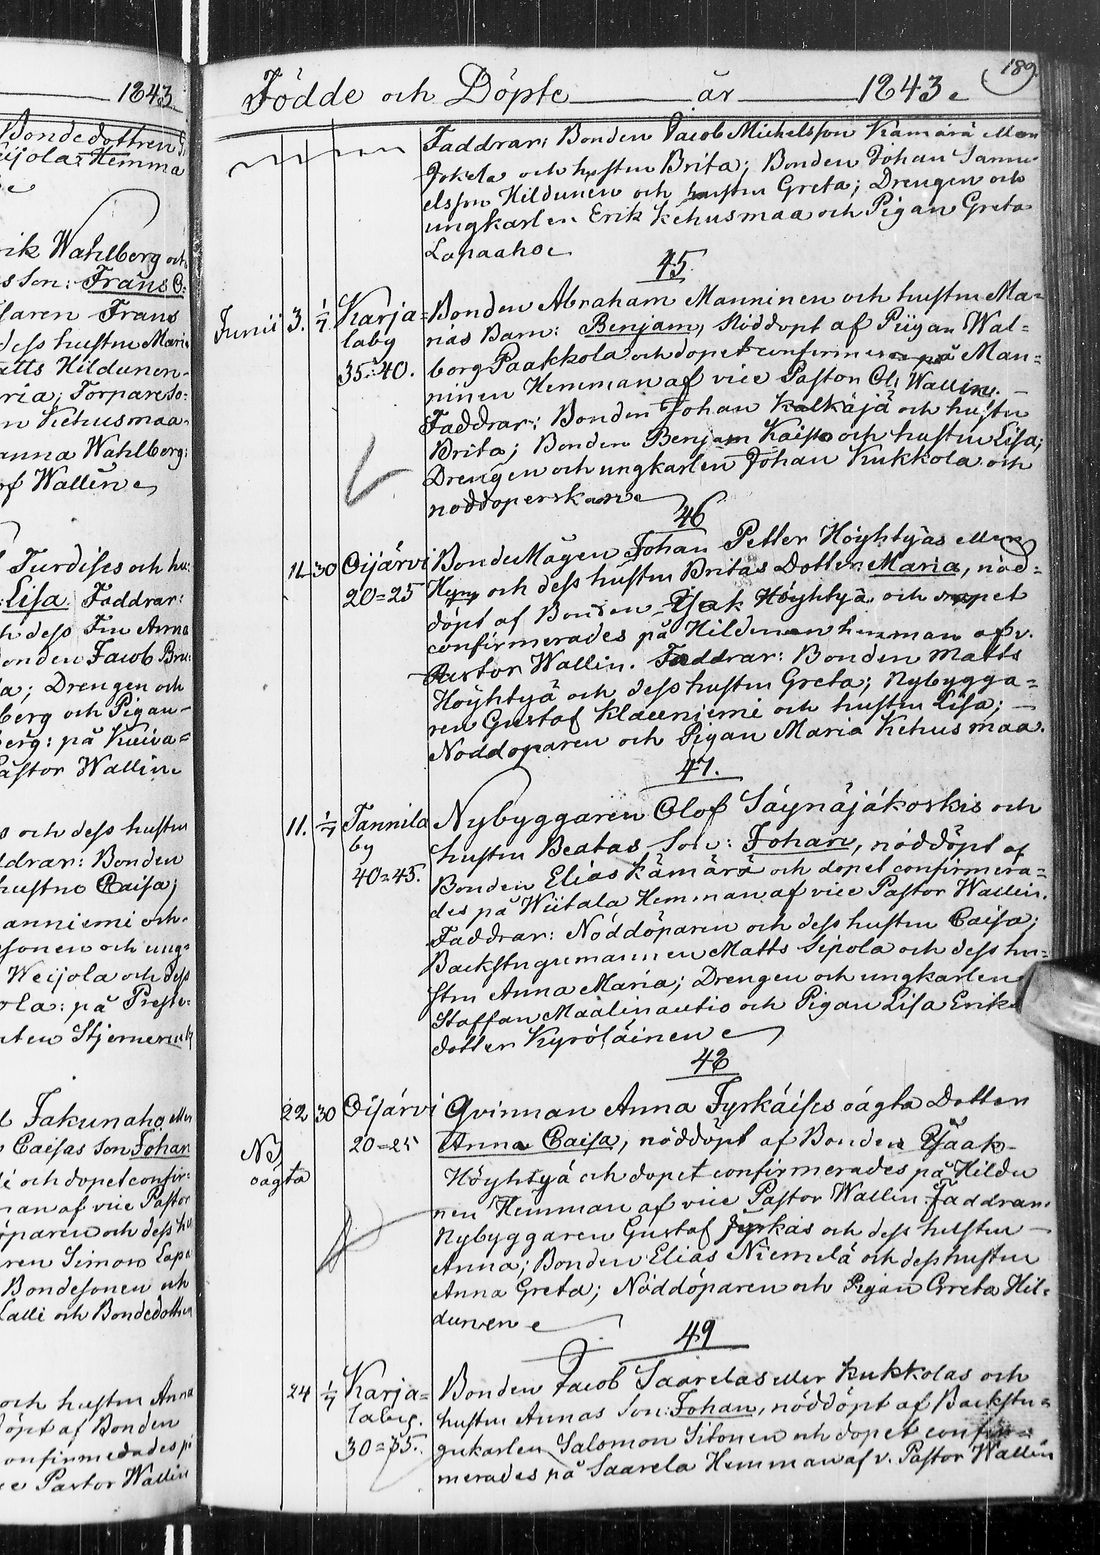 1843
Bondedottren
Hemma
rik Wahlberg och
Son: Frans O:
laren Frans
dess hustru Maria
atts Hildunen
ria; Torpare So:
n Kehusmaa
anna Wahlberg:
af Wallin
Turdises och hu:
Lisa. Faddrar:
h dess Fru Anna
onden Jacob Bru:
la; Drengen och
berg och Pigan
berg: på Kuiva=
Pastor Wallin
s och dess hustru
ddrar: Bonden
hustru Caisa;
anniemi och
sonen och ung:
Weijola och dess
ola: på Preste:
Jakunaho eller
Caisas Son Johan
i och döpet confir:
man af vice Pastor
öparen och dess hu
ren Simon Lapa
Bondesonen och
Lalli och Bondedottren
och hustru Anna
döpt af Bonden
confirmerades på
ce Pastor Wallin
189.
Födde och Döpte år 1843.
Faddrar: Bonden Jacob Michelsson Kämärä eller
Jokela och hustru Brita; Bonden Johan Samu
elsson Hildunen och hustru Greta; Drengen och
ungkarlen Erik Kehusmaa och Pigan Greta
Lapaaho
45
Junii 3. 1/7 Karja= Bonden Abraham Manninen och hustru Ma=
laby rias Barn: Benjam, Nöddöpt af Piigan Wal=
35=40. borg Paakkola och döpet confirmeras på Man=
ninen Hemman af vice Pastor Ol: Wallin.
Faddrar: Bonden Johan Kalkäjä och hustru
Brita; Bonden Benjam Kaisto och hustru Lisa;
Drengen och ungkarlen Johan Kukkola och
nöddöperskan
46
11 30 Oijärvi BondeMågen Johan Petter Höyhtyäs eller
20=25 och dess hustru Britas Dotter Maria, nöd=
döpt af Bonden Isak Höyhtyä och döpet
confirmerades på Hildunen hemman af v.
Pastor Wallin. Faddrar: Bonden Matts
Höyhtyä och dess hustru Greta; Nybygga=
ren Gustaf Klaeniemi och hustru Lisa;
Nöddöparen och Pigan Maria Kehusmaa.
47.
11. 1/7 Tannila Nybyggaren Olof Säynäjäkoskis och
by hustru Beatas Son: Johan, nöddöpt af
40=45. Bonden Elias Kämärä och döpet confirmera=
des på Wiitala Hemman af vice Pastor Wallin.
Faddrar: Nöddöparen och dess hustru Caisa;
Backstugumannen Matts Sipola och dess hu=
stru Anna Maria; Drengen och ungkarlen
Staffan Maalinautio och Pigan Lisa Eriks
dotter Kyröläinen
48
22 30 Oijärvi Qvinnan Anna Tyrkäises oägta Dotter
NB 20=25 Anna Caisa, nöddöpt af Bonden Isaak
oägta Höyhtyä och döpet confirmerades på Hildu
nen Hemman af vice Pastor Wallin. Faddrar:
Nybyggaren Gustaf Tyrkäs och dess hustru
Anna; Bonden Elias Niemelä och dess hustru
Anna Greta; Nöddöparen och Pigan Greta Hil=
dunen
49
24 1/7 Karja= Bonden Jacob Saarelas eller Kukkolas och
laby. hustru Annas Son: Johan, nöddöpt af Backstu=
30=35. gukarlen Salomon Sitonen och döpet confir=
merades på Saarela Hemman af v. Pastor Wallin